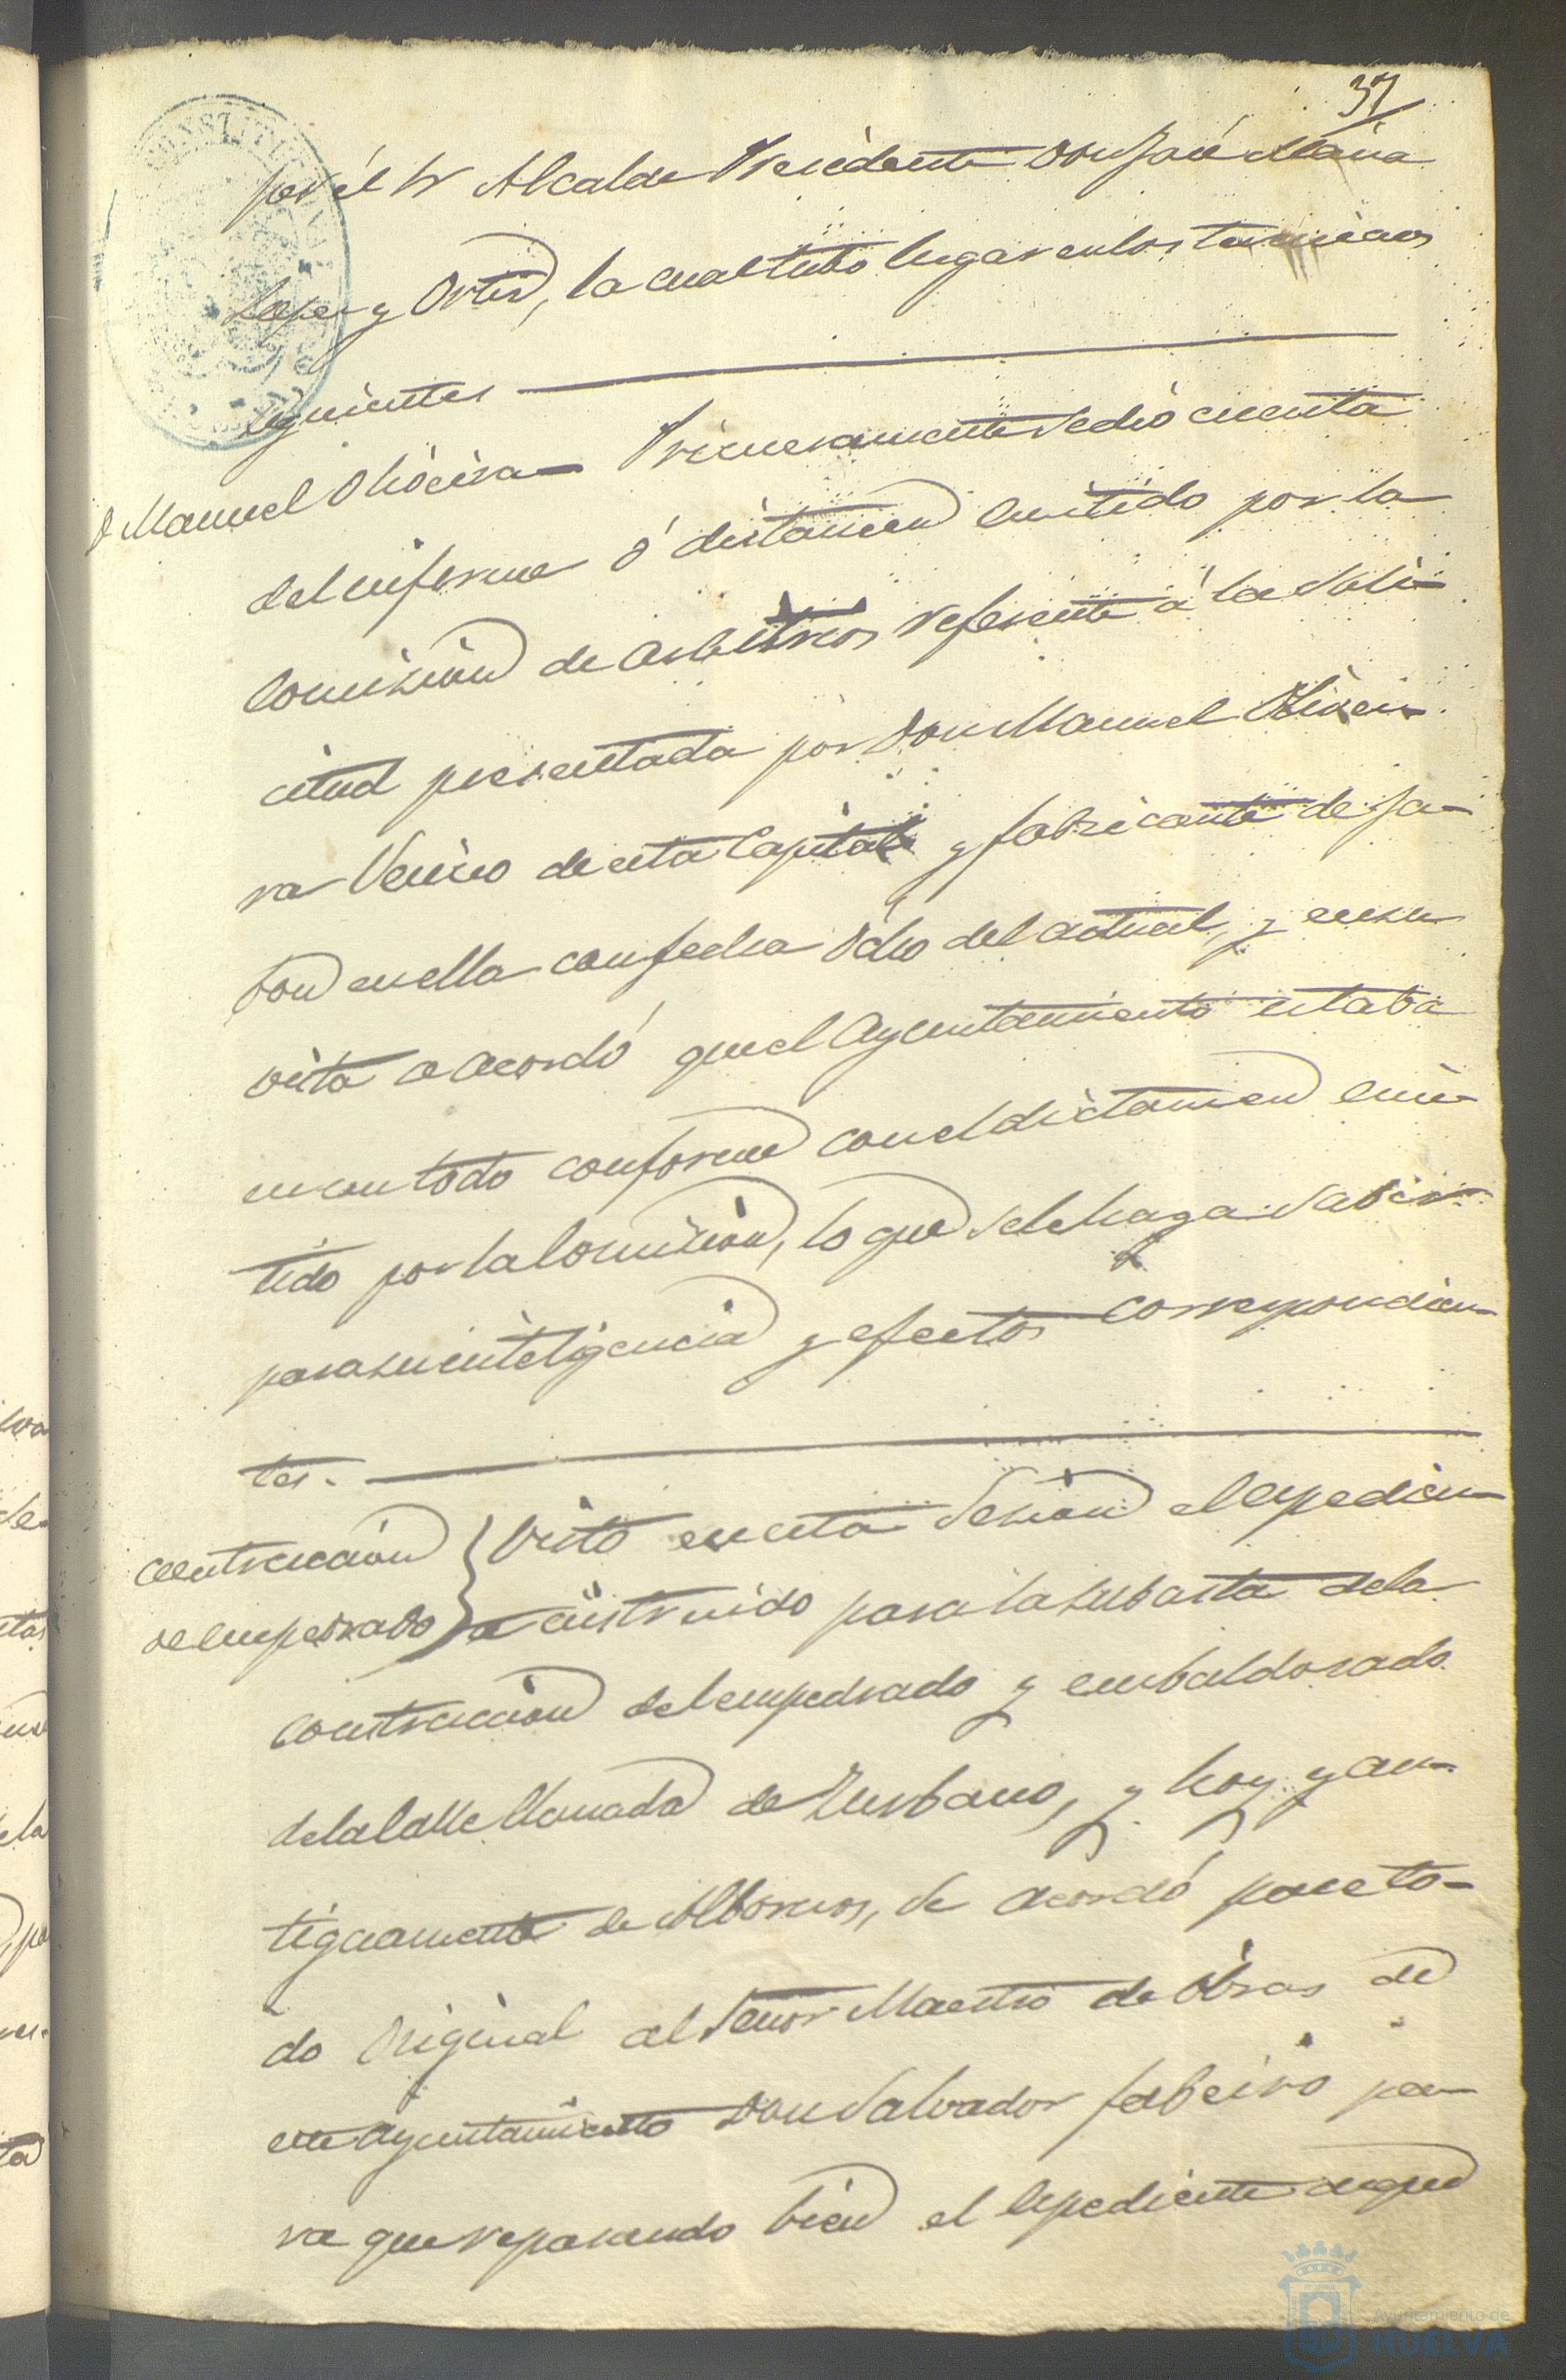 37
por él Sr Alcalde Precidente Don José Maria
Lopez y Ortiz, la cual tubo lugar en los terminos
siguientes
D Manuel Olibeira Primeramente se dió cuenta
del informe ó dictamen emitido por la
Comision de Arbitrios referente á la soli-
citud presentada por Don Manuel Olivei-
ra Vecino de esta Capital y fabricante de ja-
bon en ella con fecha Ocho del actual, y en su
vista se acordó que el Ayuntamiento estaba
en un todo conforme con el dictamen emi-
tido por la Comision, lo que se le haga saber
para su inteligencia y efectos correspondien-
tes.
Contruccion
de empedrado
Visto en esta Sesion el expedien-
te instruido para la subasta de la
contruccion del empedrado y embaldosado
de la Calle llamada de Zurbano, y hoy y an-
tiguamente de Albornos, se acordó pace to-
do Original al Señor Maestro de Obras de
este Ayuntamiento Don Salvador Jabeiro pa-
ra que repasando bien el Espediente aque
Ayuntamiento de
HUELVA